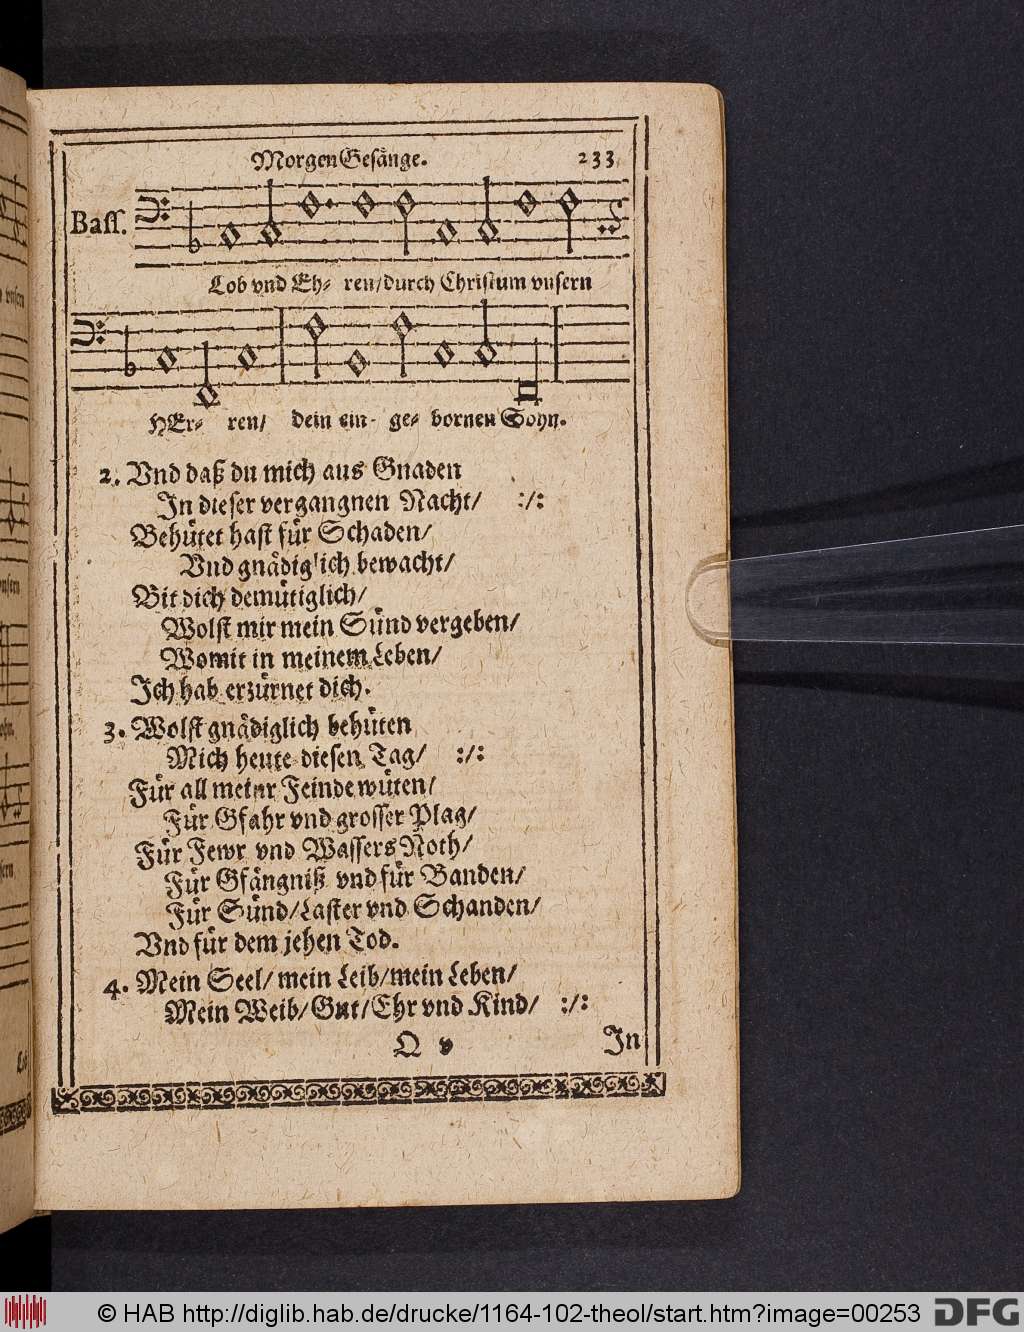 MorgenGesånge. 233
Bass.
Lob vnd Eh- ren/durch Christum vnsern
HEr- ren/ dein ein- ge- bornen Sohn.
2. Vnd daß du mich aus Gnaden
In dieser vergangnen Nacht/ :/:
Behütet hast für Schaden/
Vnd gnädiglich bewacht/
Bit dich demütiglich/
Wolst mir mein Sünd vergeben/
Womit in meinem Leben/
Ich hab erzürnet dich.
3. Wolst gnädiglich behüten
Mich heute diesen Tag/ :/:
Für all meinr Feinde wüten/
Für Gfahr vnd grosser Plag/
Für Fewr vnd Wassers Noth/
Für Gfängniß vnd für Banden/
Für Sünd/Laster vnd Schanden/
Vnd für dem jehen Tod.
4. Mein Seel/ mein Leib/mein Leben/
Mein Weib/Gut/Ehr vnd Kind/ :/:
Q v In
© HAB http://diglib.hab.de/drucke/1164-102-theol/start.htm?image=00253 DFG